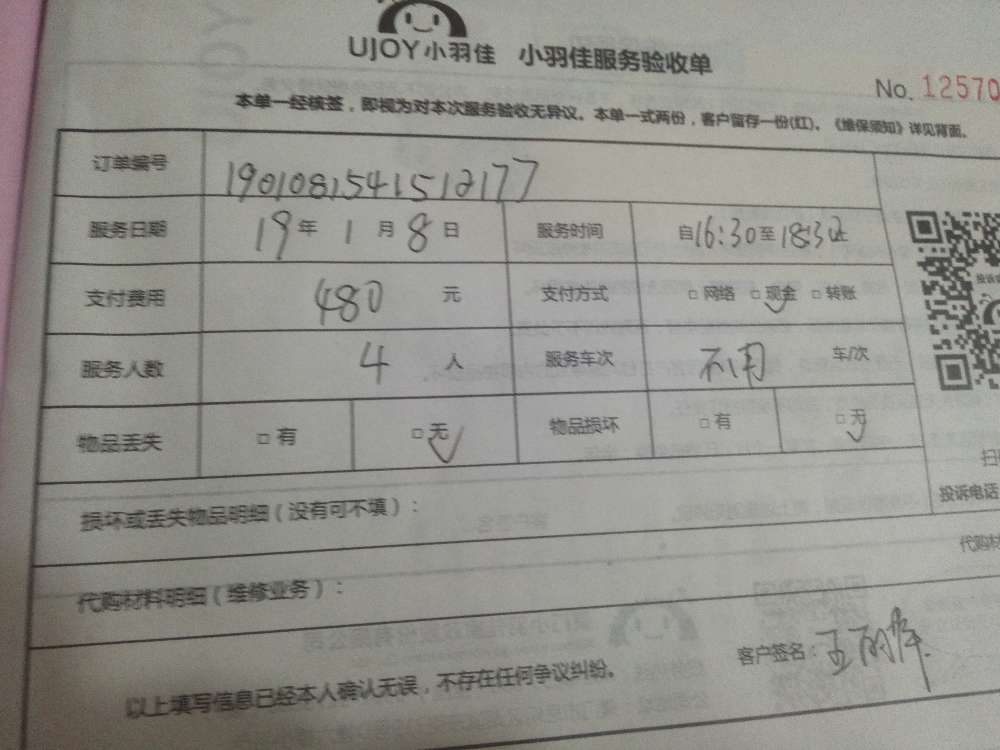 UJOY小羽佳 小羽佳服务验收单
No. 12570
本单一经核签，即视为对本次服务验收无异议。本单一式两份，客户留存一份(红)。《维保须知》详见背面。
订单编号 190108154151217​7
服务日期 19 年 1 月 8 日 服务时间 自16:30至18:30止
支付费用 480 元 支付方式 □网络 □现金 □转账
服务人数 4 人 服务车次 不用 车/次
物品丢失 □有 □无 物品损坏 □有 □无
投诉电话
损坏或丢失物品明细（没有可不填）：
代购材料明细（维修业务）：
以上填写信息已经本人确认无误，不存在任何争议纠纷。
客户签名：王